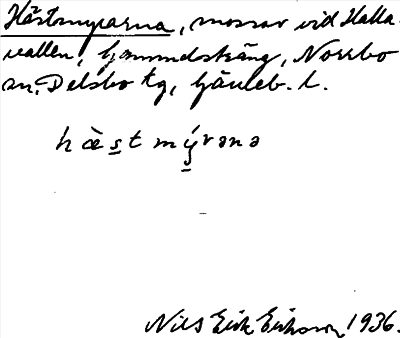 Hästmyrarna, mossar vid Halla-
vallen, Gammelsträng, Norrbo
sn, Delsbo tg, Gävleb. l.
hä̀s̲t mý̲rənə
Nils Erik Eriksson 1936.